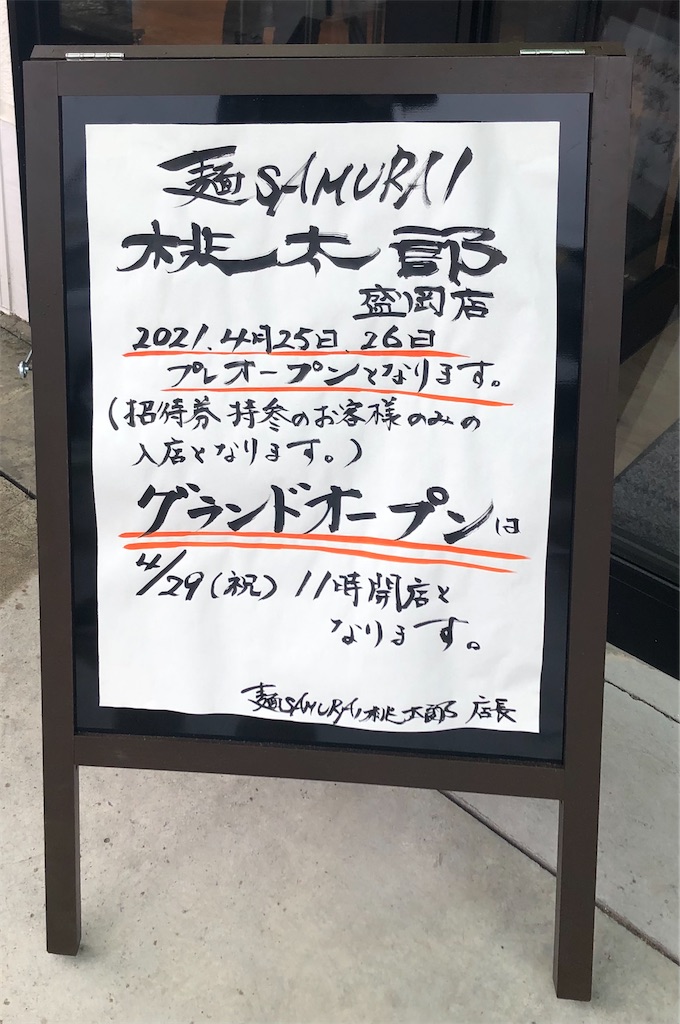 麺SAMURAI
桃太郎
盛岡店
2021.4月25日、26日
プレオープンとなります。
(招待券持参のお客様のみの
入店となります。)
グランドオープンは
4/29(祝) 11時開店と
なります。
麺SAMURAI桃太郎 店長